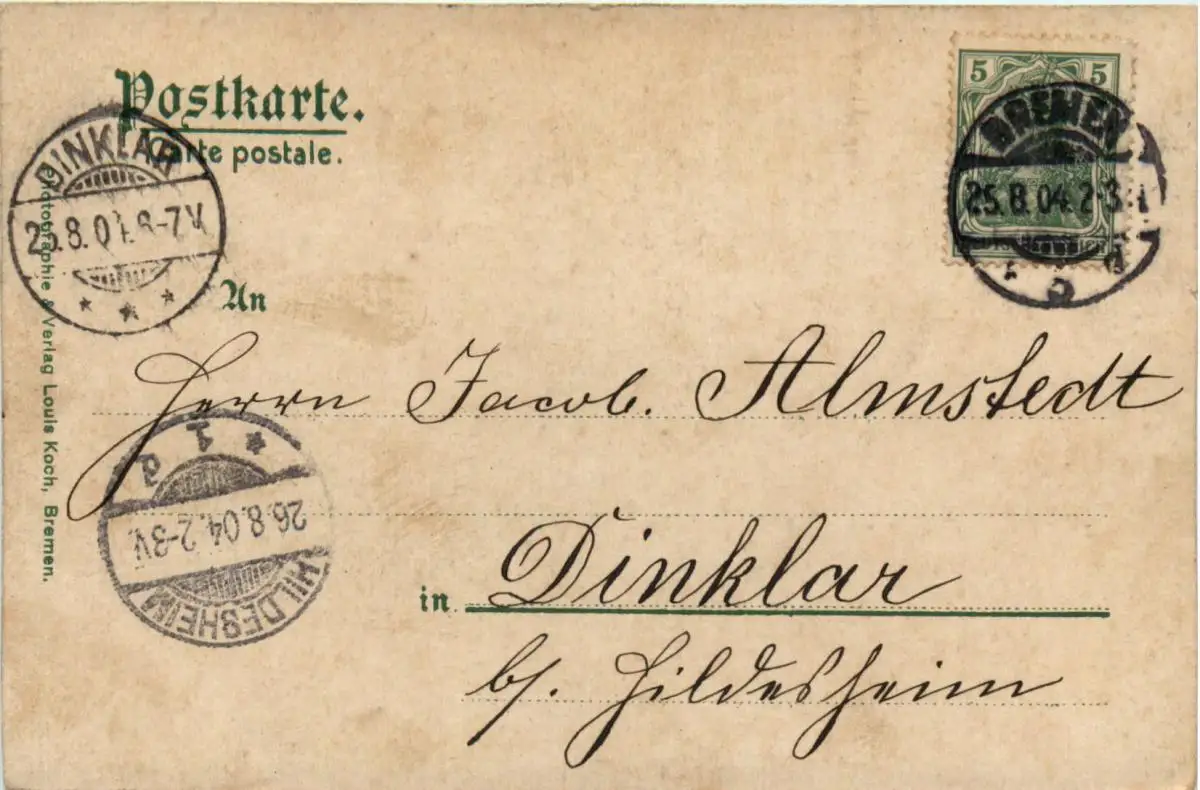 Postkarte.
Carte postale.
5 5
BREMEN
25.8.04. 2-3
DEUTSCHES REICH
DINKLAR
8.0 -7V.
An
Herrn Jacob. Almstedt
1
26.8.04. 2-3V.
HILDESHEIM
in Dinklar
b/. Hildesheim
Photographie & Verlag Louis Koch, Bremen.